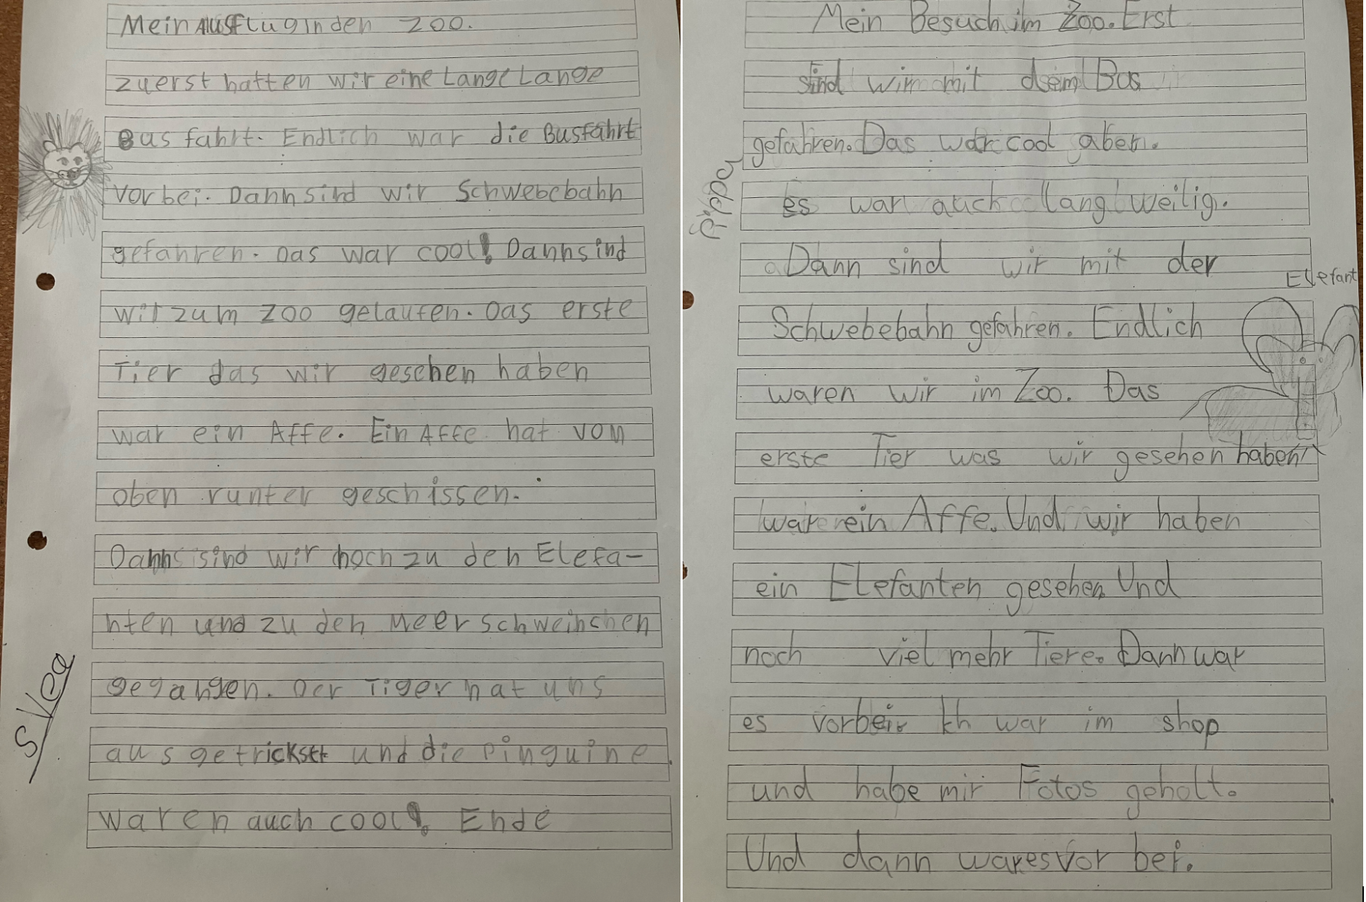 Mein Ausflug in den Zoo.
zuerst hatten wir eine Lange Lange
Bus fahrt. Endlich war die Busfahrt
vorbei. Dann sind wir Schwebebahn
gefahren. Das war cool! Dann sind
wir zum Zoo gelaufen. Das erste
Tier das wir gesehen haben
war ein Affe. Ein Affe hat von
oben runter geschissen.
Dann sind wir noch zu den Elefa-
nten und zu den Meerschweinchen
gegangen. Der Tiger hat uns
ausgetrickst und die Pinguine
waren auch cool! Ende
Mein Besuch im Zoo. Erst
sind wir mit dem Bus
gefahren. Das war cool aber.
es war auch langweilig.
Dann sind wir mit der
Elefant
Schwebebahn gefahren. Endlich
waren wir im Zoo. Das
erste Tier was wir gesehen haben
war ein Affe. Und wir haben
ein Elefanten gesehen Und
noch viel mehr Tiere. Dann war
es vorbei. Ich war im shop
und habe mir Fotos geholt.
Und dann war es vor bei.